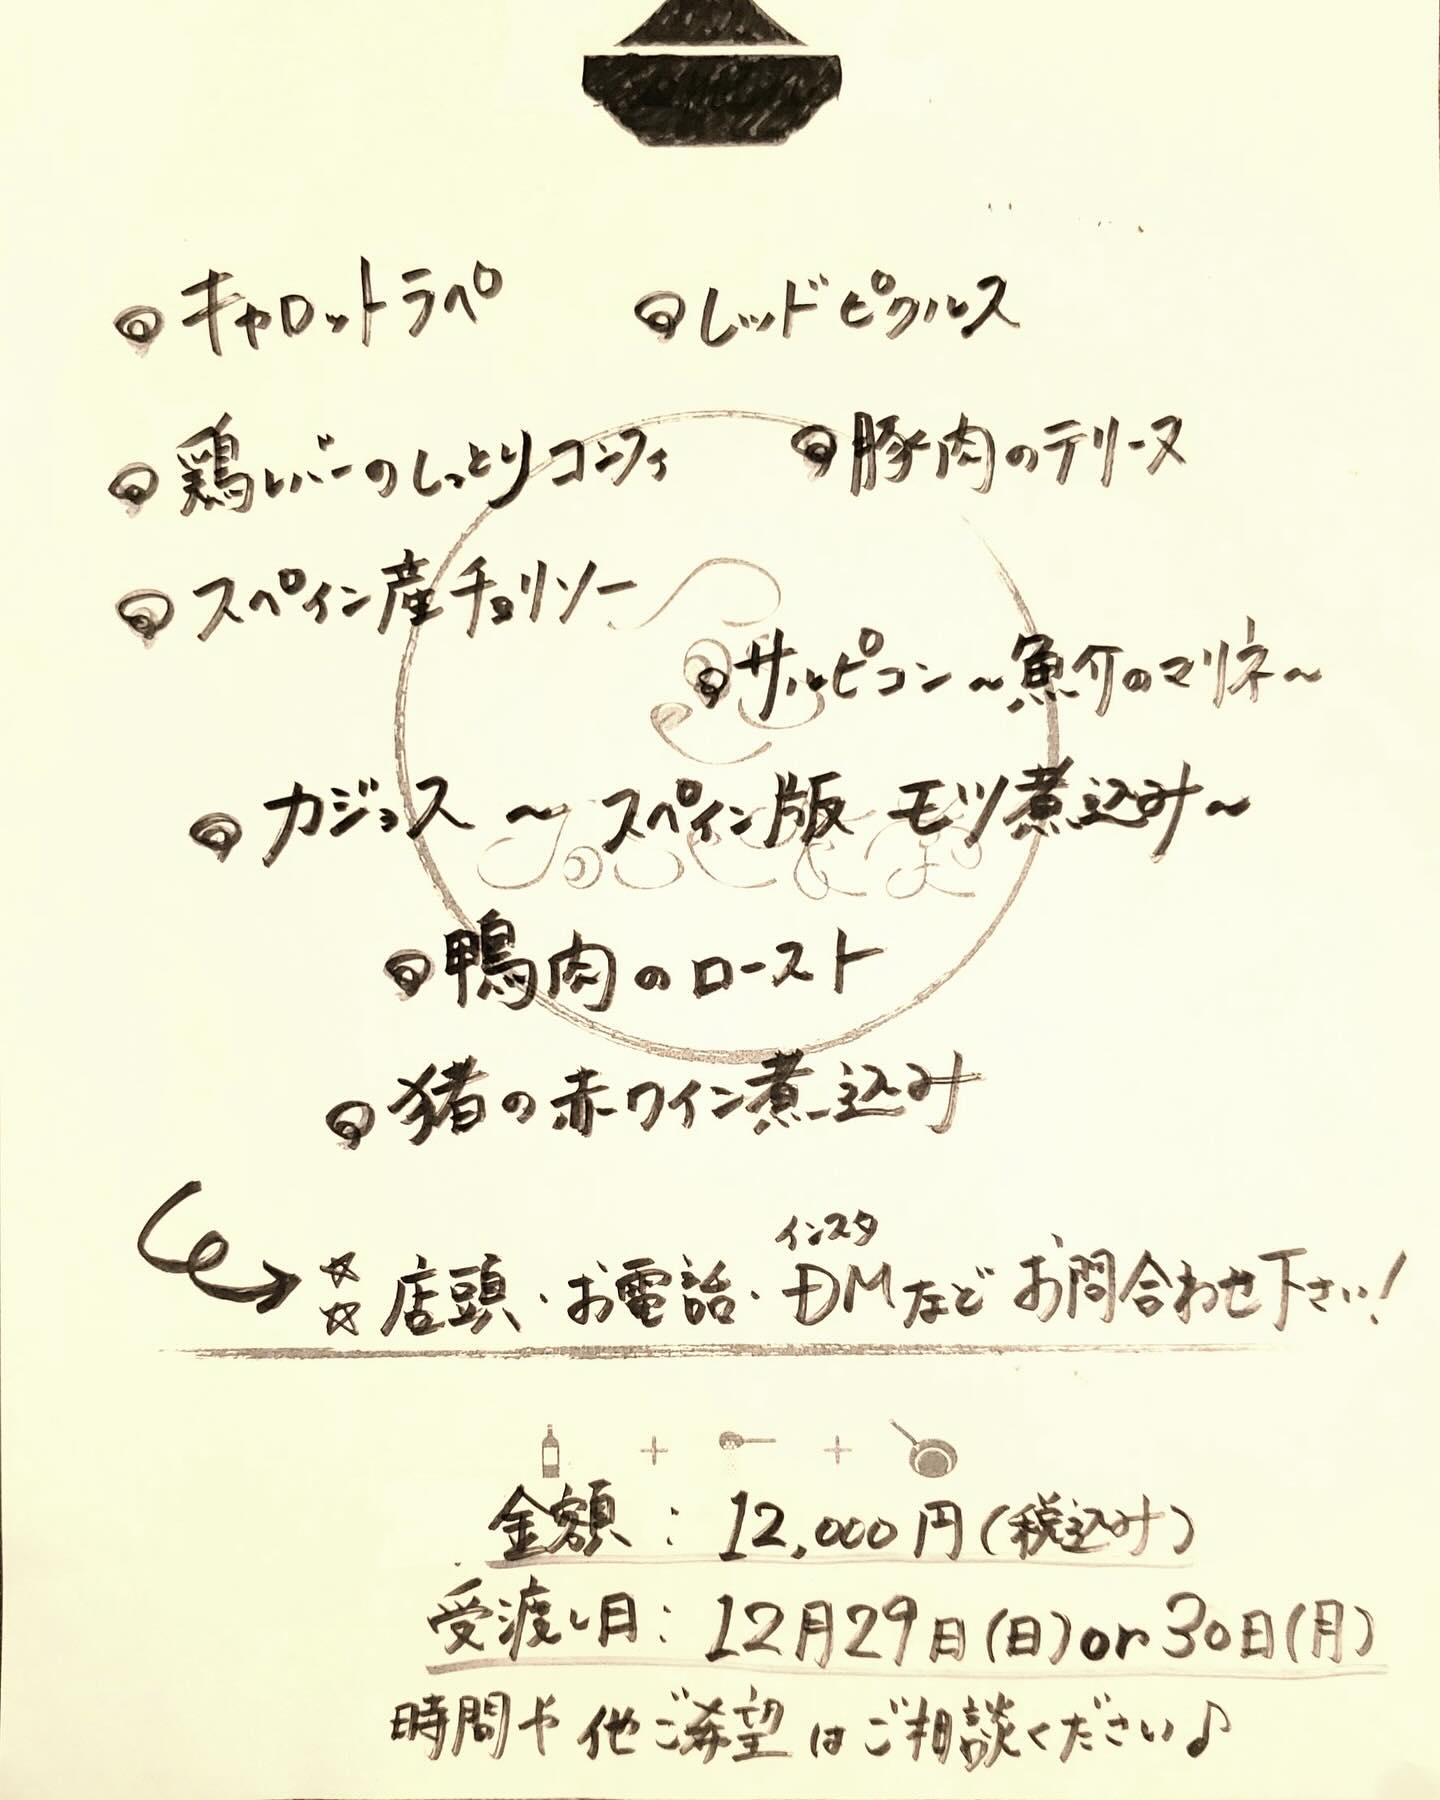 キャロットラペ
レッドピクルス
鶏レバーのしっとりコンフィ
豚肉のテリーヌ
スペイン産チョリソー
サルピコン~魚介のマリネ~
カジョス ~ スペイン版 モツ煮込み~
鴨肉のロースト
猪の赤ワイン煮込み
インスタ
店頭・お電話・DMなど お問合わせ下さい!
金額:12,000円(税込み)
受渡し日:12月29日(日)or30日(月)
時間や他ご希望はご相談ください♪